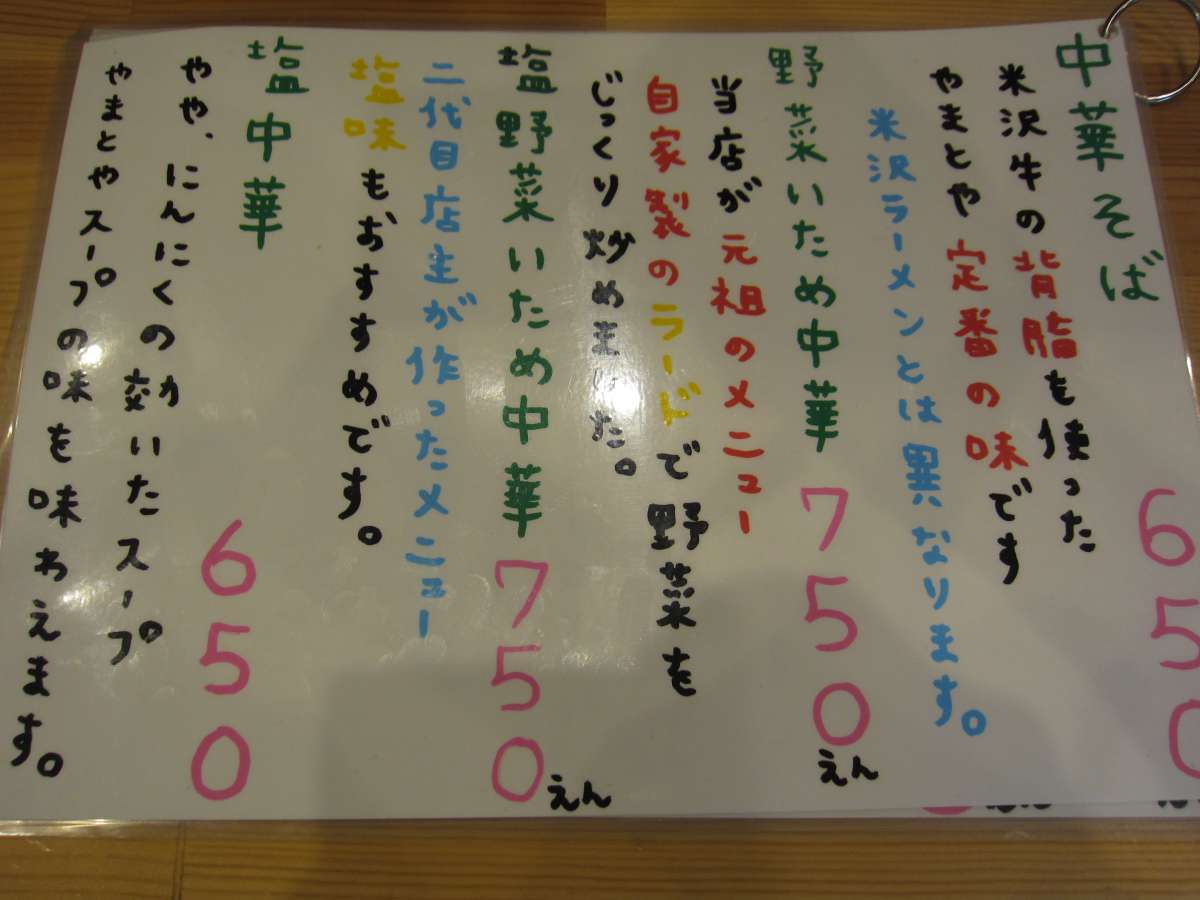 中華そば 650
米沢牛の背脂を使った
やまとや定番の味です
米沢ラーメンとは異なります。
野菜いため中華 750えん
当店が元祖のメニュー
自家製のラードで野菜を
じっくり炒めました。
塩野菜いため中華 750えん
二代目店主が作ったメニュー
塩味もおすすめです。
塩中華 650
やや、にんにくの効いたスープ
やまとやスープの味を味わえます。